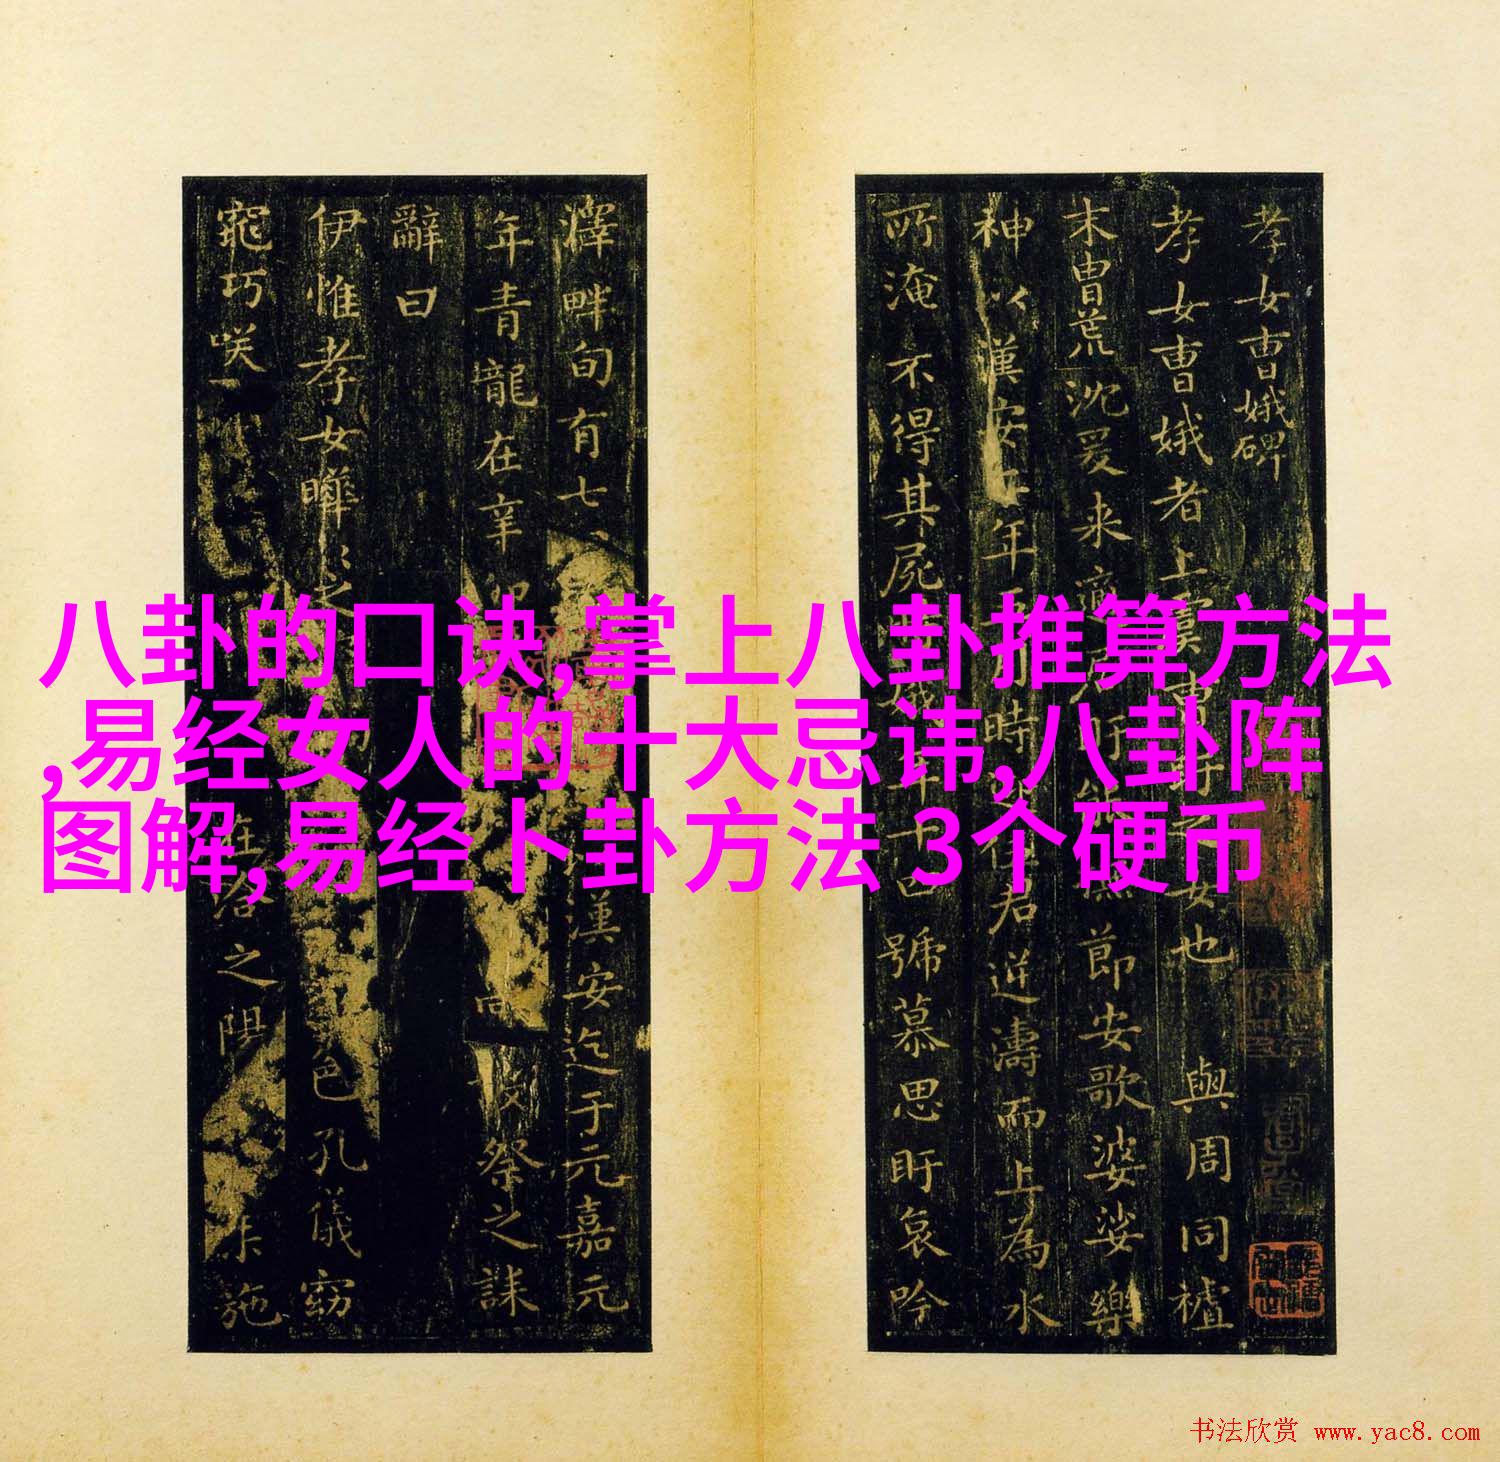 孝女曹娥碑
孝女曹娥者上虞曹盱之女也與周同祖
末胄荒沈爰来適居盱能撫節安歌婆娑樂
神以漢安二年五月時迎伍君逆濤而上為水
所淹不得其屍娥年十四號慕思盱哀吟
澤畔旬有七漢安迄于元嘉元
年青龍在辛卯祭之誄
辭曰
伊惟孝女曄之色孔儀窈
窕巧咲洛之陽施
八卦的口诀,掌上八卦推算方法
,易经女人的十大忌讳,八卦阵
图解,易经卜卦方法 3个硬币
书法欣赏 www.yac8.com